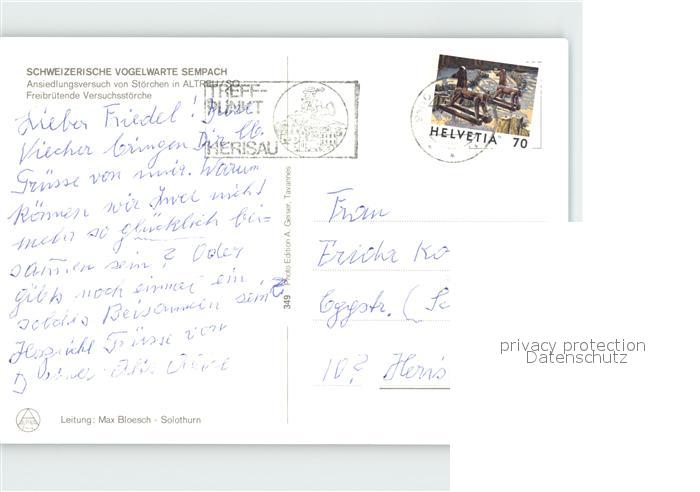 SCHWEIZERISCHE VOGELWARTE SEMPACH
Ansiedlungsversuch von Störchen in ALTREU/SO
Freibrütende Versuchsstörche
Lieber Friedel! Diese
Viecher bringen Dir lb.
Grüsse von mir. Warum
können wir zwei nicht
mehr so glücklich bei-
sammen sein? Oder
gibts noch einmal ein
solches Beisammen sein?
Herzliche Grüsse von
TREFF-
PUNKT
HERISAU
HELVETIA 70
349 Photo Edition A. Geiser, Tavannes
Frau
Ericha Ko
Eggstr. (
10? Heris
privacy protection
Datenschutz
Leitung: Max Bloesch - Solothurn